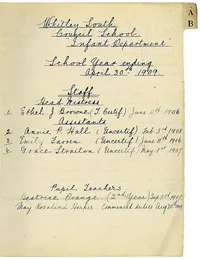 Whitley South
Council School
Infant Department
School Year ending
April 30th 1909.
Staff
Head Mistress
1. Ethel J (T. Certif) June 11th 1906
Assistants
2. Annie P. Hall (Uncertif) Feb 3rd 1908
3. Emily (Uncertif) June 11th 1906
4. Grace (Uncertif) May 1st 1907
Pupil Teachers
Beatrice Orange (2nd Year) Sep 3rd 1907
May Rosalind Harper Commenced duties Aug
A
B